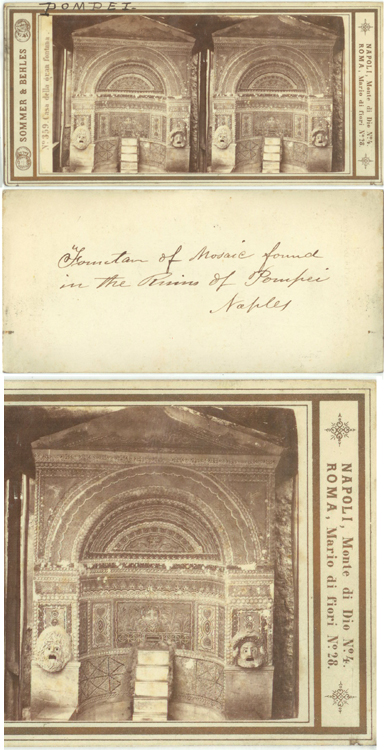 POMPEI.
SOMMER & BEHLES
Nº 359. Casa della gran fontana.
NAPOLI, Monte di Dio Nº 4.
ROMA, Mario di fiori Nº 28.
"Fountan of Mosaic found
in the Ruins of Pompei
Naples
NAPOLI, Monte di Dio Nº 4.
ROMA, Mario di fiori Nº 28.